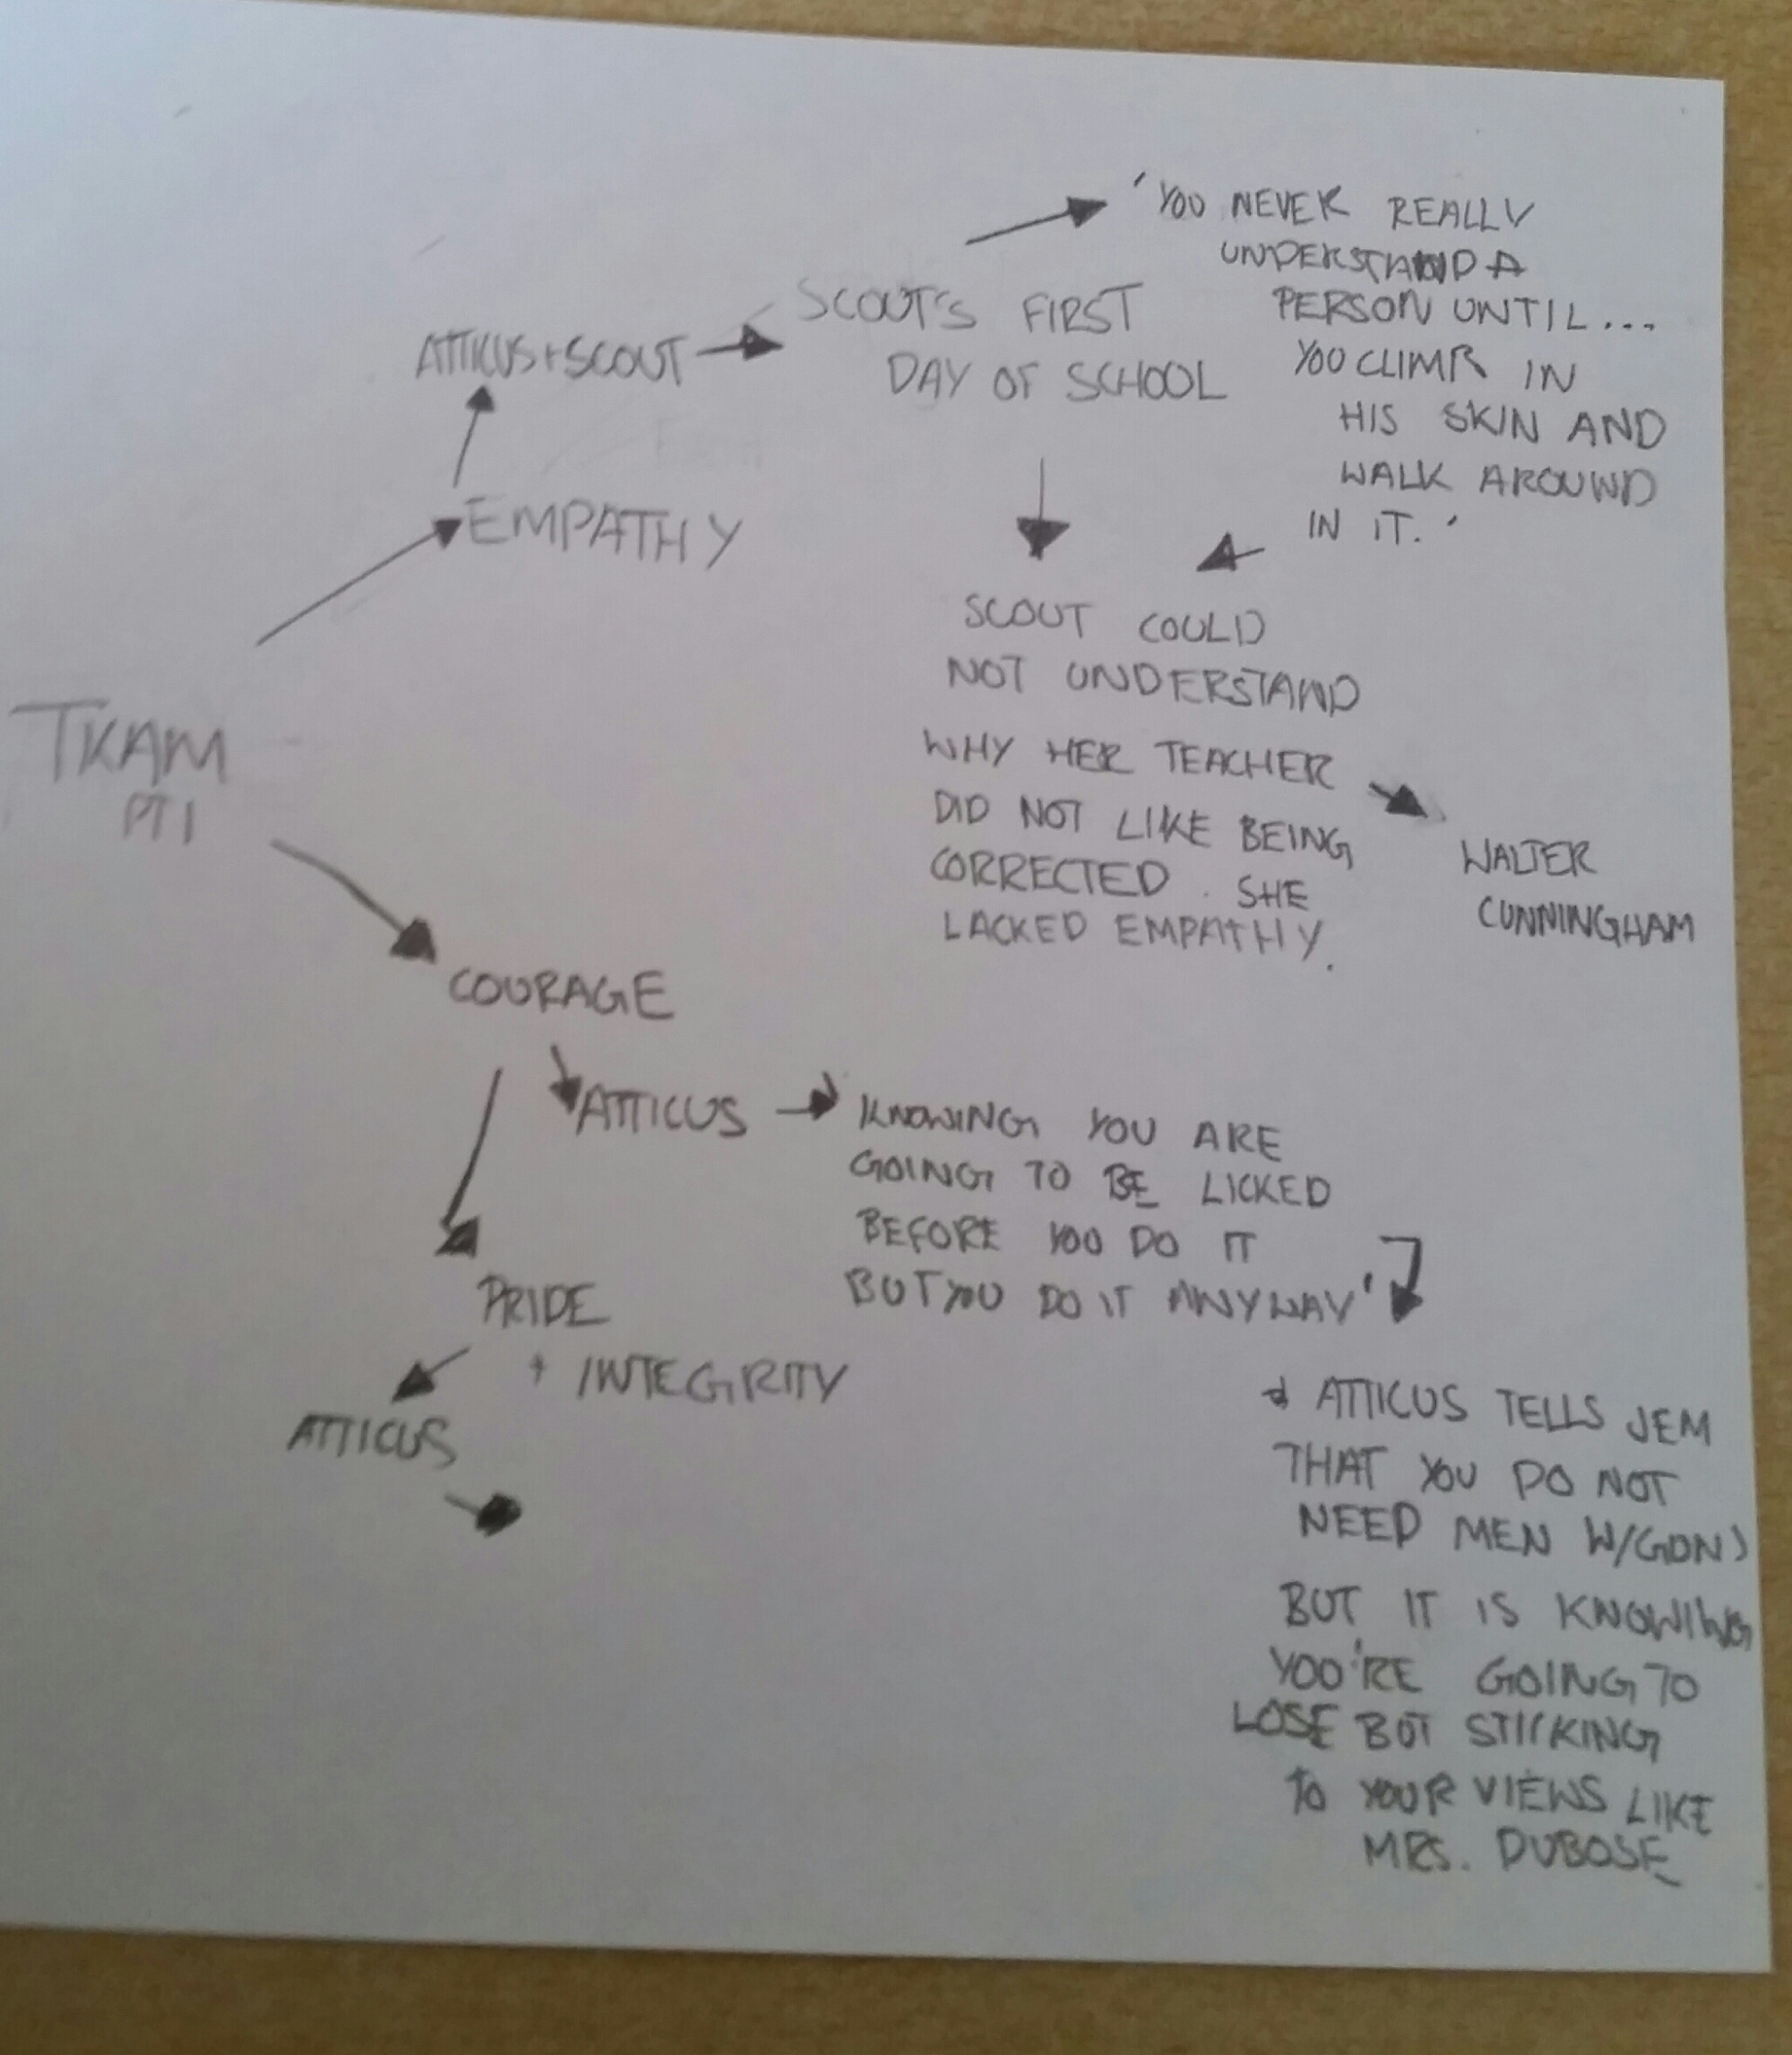 'YOU NEVER REALLY
UNDERSTAND A
PERSON UNTIL...
YOU CLIMB IN
HIS SKIN AND
WALK AROUND
IN IT.'
SCOUT'S FIRST
DAY OF SCHOOL
ATTICUS + SCOUT
EMPATHY
SCOUT COULD
NOT UNDERSTAND
WHY HER TEACHER
DID NOT LIKE BEING
CORRECTED. SHE
LACKED EMPATHY.
WALTER
CUNNINGHAM
TKAM
PT 1
COURAGE
ATTICUS
KNOWING YOU ARE
GOING TO BE LICKED
BEFORE YOU DO IT
BUT YOU DO IT ANYWAY'
PRIDE
+ INTEGRITY
ATTICUS
ATTICUS TELLS JEM
THAT YOU DO NOT
NEED MEN W/GUNS
BUT IT IS KNOWING
YOU'RE GOING TO
LOSE BUT STICKING
TO YOUR VIEWS LIKE
MRS. DUBOSE